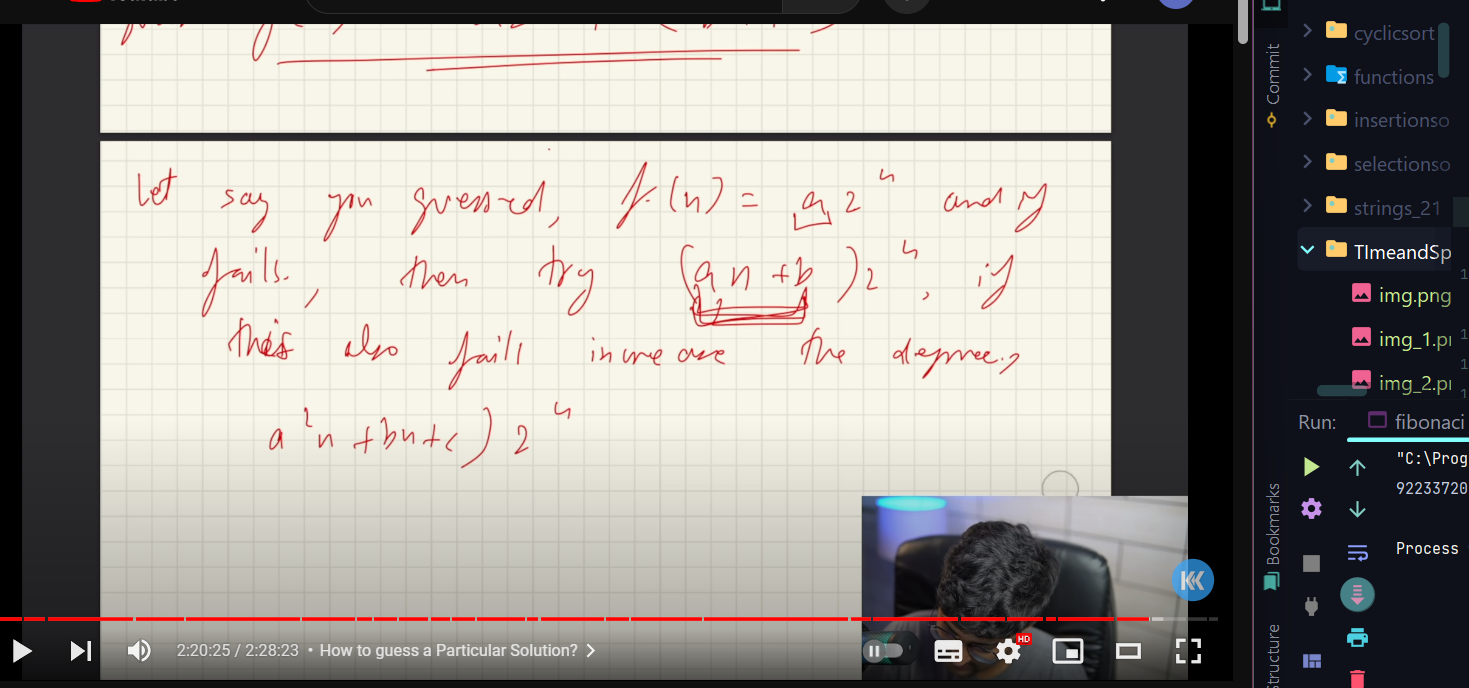 Let say you guessed, f(n) = a2ⁿ and if
fails, then try (an+b)2ⁿ, if
this also fails increase the degree,
a²n+bn+c)2ⁿ
2:20:25 / 2:28:23 • How to guess a Particular Solution?
HD
Commit
Bookmarks
Structure
cyclicsort
functions
insertionso
selectionso
strings_21
TImeandSp
img.png
img_1.p
img_2.p
Run: fibonaci
"C:\Prog
92233720
Process